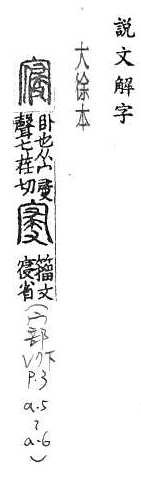 說文解字
大徐本
寑
臥也从宀㑴
聲七荏切
籒文
寑省
(宀部
V.7下
P.3
a.5
~
a.6)